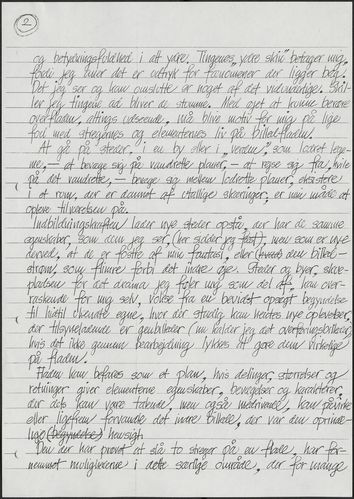 2
og betydningsfuldhed i alt ydre. Tingenes "ydre skin" betager mig,
fordi jeg aner det er udtryk for fænomener der ligger bag.
Det jeg ser og kan omslutte er noget af det vidunderlige. Skil-
ler jeg tingene ad bliver de stumme. Med øjet at kunne berøre
overfladen, altings udseende, må blive motiv for mig på lige
fod med stregernes og elementernes liv på billedfladen.
At gå på steder, i en by eller i "verden", som lodret læg-
me, – at bevæge sig på vandrette planer, – at rejse sig fra, hvile
på det vandrette, – bevæge sig mellem lodrette planer, eksistere
i et rum, der er dannet af utallige skæringer, er min måde at
opleve tilværelsen på.
Indbildningskraften lader nye steder opstå, der har de samme
egenskaber, som dem jeg ser, (her sidder jeg fast), men som er nye
derved, at de er fostre af min fantasi, eller den billed-
strøm, som flimrer forbi det indre øje. Steder og byer, skue-
pladsen for det drama jeg føler mig som del af, kan over-
raske for mig selv, vokse fra en bevidst opsøgt begyndelse
til hidtil ukendte egne, hvor der stadig kan hentes nye oplevelser,
der tilsyneladende er genbilleder (nu kalder jeg det overføringsbilleder)
hvis det ikke gennem bearbejdning lykkes at gøre dem virkelige
på fladen.
Fladen kan befares som et plan, hvis delinger, størrelser og
retninger giver elementerne egenskaber, bevægelser og karakterer,
der dels kan være talende, men også medrivende, kan påvirke
eller ligefrem forvandle det indre billede, der var den oprinde-
lige (begyndelse) hensigt.
Den der har prøvet at slå to streger på en flade, har for-
nemmet mulighederne i dette særlige område, der for mange